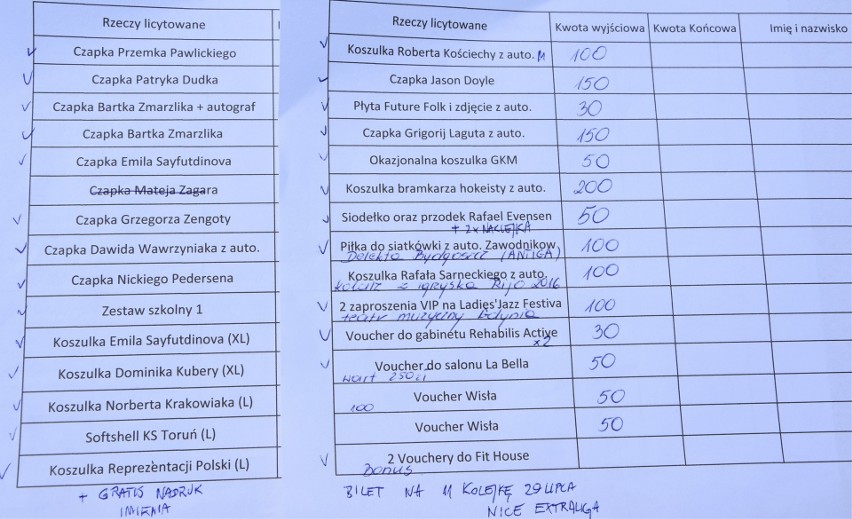 Rzeczy licytowane
Czapka Przemka Pawlickiego
Czapka Patryka Dudka
Czapka Bartka Zmarzlika + autograf
Czapka Bartka Zmarzlika
Czapka Emila Sayfutdinova
Czapka Mateja Zagara
Czapka Grzegorza Zengoty
Czapka Dawida Wawrzyniaka z auto.
Czapka Nickiego Pedersena
Zestaw szkolny 1
Koszulka Emila Sayfutdinova (XL)
Koszulka Dominika Kubery (XL)
Koszulka Norberta Krakowiaka (L)
Softshell KS Toruń (L)
Koszulka Reprezentacji Polski (L)
+ GRATIS NADRUK
IMIENIA
Rzeczy licytowane Kwota wyjściowa Kwota Końcowa Imię i nazwisko
Koszulka Roberta Kościechy z auto. M 100
Czapka Jason Doyle 150
Płyta Future Folk i zdjęcie z auto. 30
Czapka Grigorij Laguta z auto. 150
Okazjonalna koszulka GKM 50
Koszulka bramkarza hokeisty z auto. 200
Siodełko oraz przodek Rafael Evensen 50
+ 2x NAKLEJKA
Piłka do siatkówki z auto. Zawodnikow 100
Delekta Bydgoszcz (ANTIGA)
Koszulka Rafała Sarneckiego z auto. 100
kolarz z igrzyska Rijo 2016
2 zaproszenia VIP na Ladies'Jazz Festiva 100
teatr muzyczny Gdynia
Voucher do gabinetu Rehabilis Active 30
x2
Voucher do salonu La Bella 50
wart 250zł
Voucher Wisła 50
100
Voucher Wisła 50
2 Vouchery do Fit House
Bonus
BILET NA 11 KOLEJKĘ 29 LIPCA
NICE EXTRALIGA